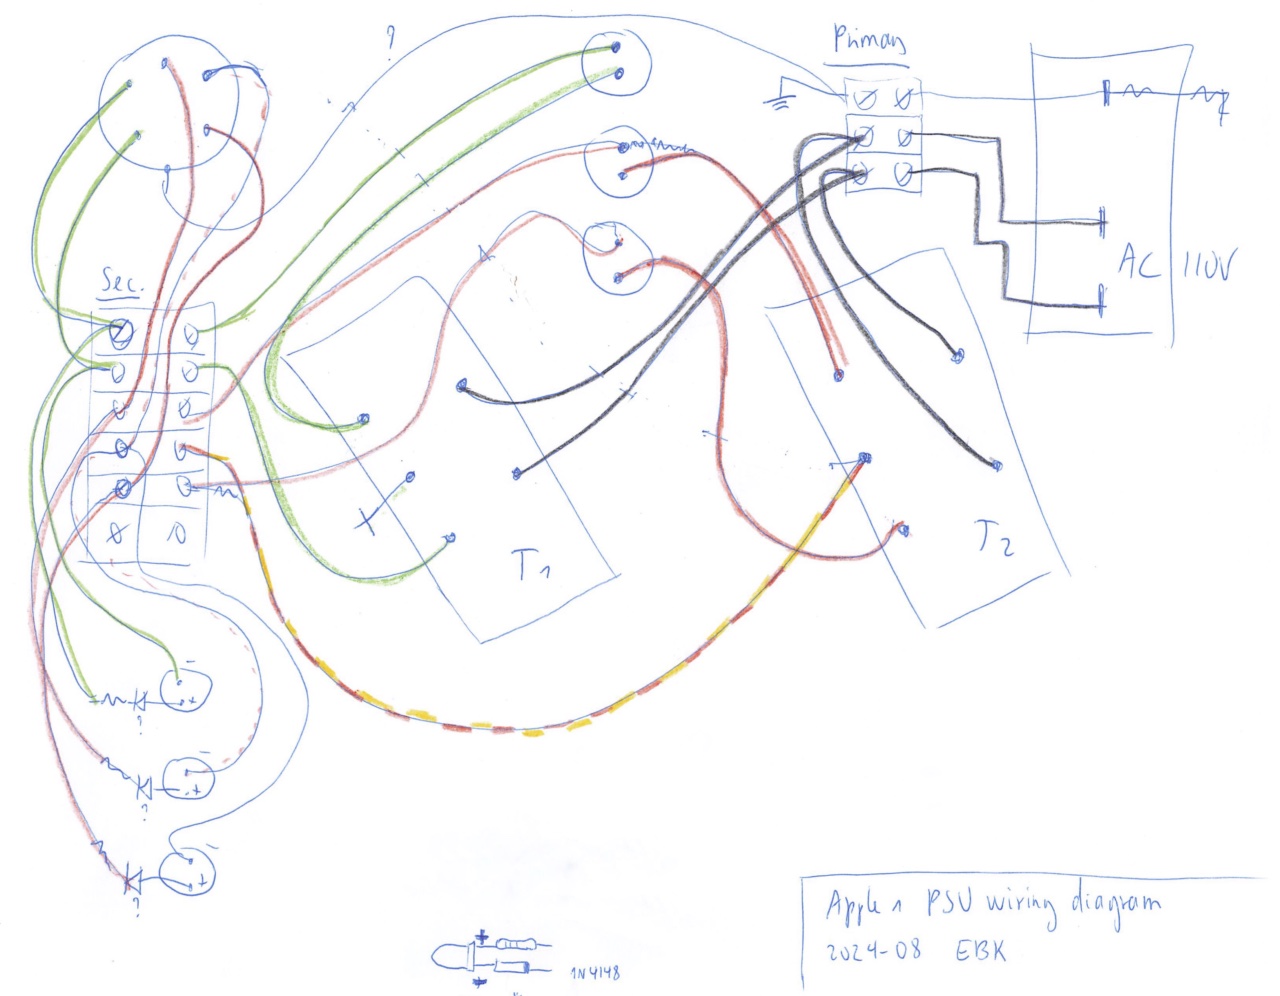 ?
Primary
Sec.
AC 110V
T1
T2
-
+
?
-
+
?
-
+
?
+
1N4148
Apple 1 PSU wiring diagram
2024-08 EBK